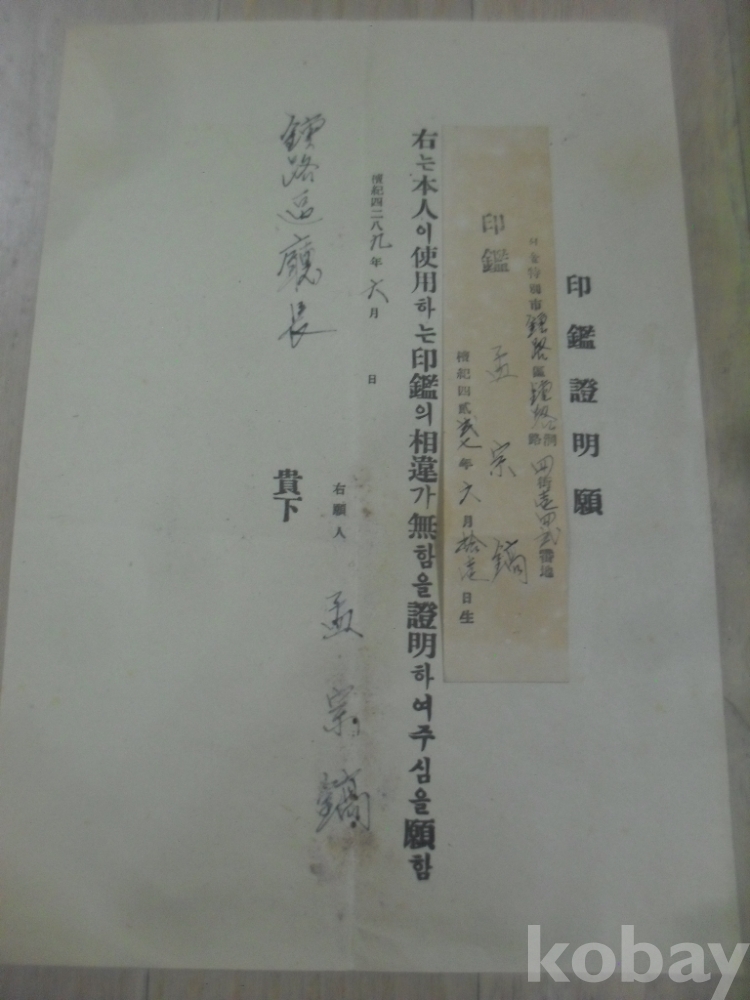 印鑑證明願
서울特別市鍾路區鍾路 四街壹四貳番地
印鑑 孟宗鎬
檀紀四貳 年六月拾壹日生
右는本人이使用하는印鑑의相違가無함을證明하여주심을願함
檀紀四二八九年六月 日
右願人 孟宗鎬
鍾路區廳長 貴下
kobay